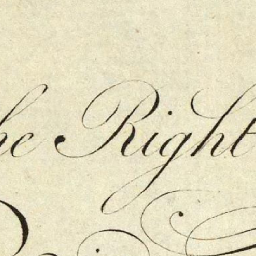 he Right